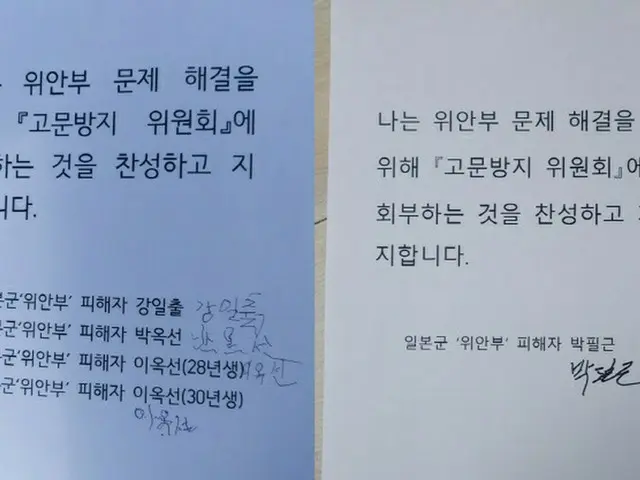 위안부 문제 해결을
『고문방지 위원회』에
하는 것을 찬성하고 지
니다.
본군'위안부' 피해자 강일출 강일출
군'위안부' 피해자 박옥선 박옥선
군'위안부' 피해자 이옥선(28년생) 이옥선
군'위안부' 피해자 이옥선(30년생)
이옥선
나는 위안부 문제 해결을
위해 『고문방지 위원회』에
회부하는 것을 찬성하고
지합니다.
일본군 '위안부' 피해자 박필근
박필근